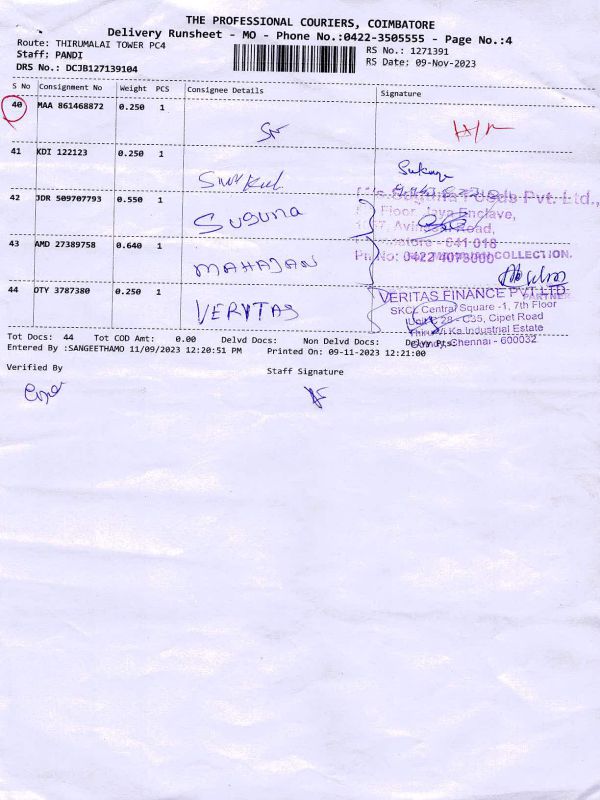 THE PROFESSIONAL COURIERS, COIMBATORE
Delivery Runsheet - MO - Phone No.:0422-3505555 - Page No.:4
Route: THIRUMALAI TOWER PC4
RS No.: 1271391
Staff: PANDI
RS Date: 09-Nov-2023
DRS No.: DCJB127139104
S No Consignment No Weight PCS Consignee Details Signature
40 MAA 861468872 0.250 1
41 KDI 122123 0.250 1
42 JDR 509707793 0.550 1
Suguna
Foods Pvt. Ltd.,
Floor, Jaya Enclave,
Road,
641 018
43 AMD 27389758 0.640 1
MAHAJAN
COLLECTION.
PARTNER
44 DTY 3787380 0.250 1
VERITAS
VERITAS FINANCE PVT LTD
SKCL Central Square -1, 7th Floor
C35, Cipet Road
Industrial Estate
Chennai - 600032
Tot Docs: 44 Tot COD Amt: 0.00 Delvd Docs: Non Delvd Docs: Delvd Pts:
Entered By :SANGEETHAMO 11/09/2023 12:20:51 PM Printed On: 09-11-2023 12:21:00
Verified By
Staff Signature